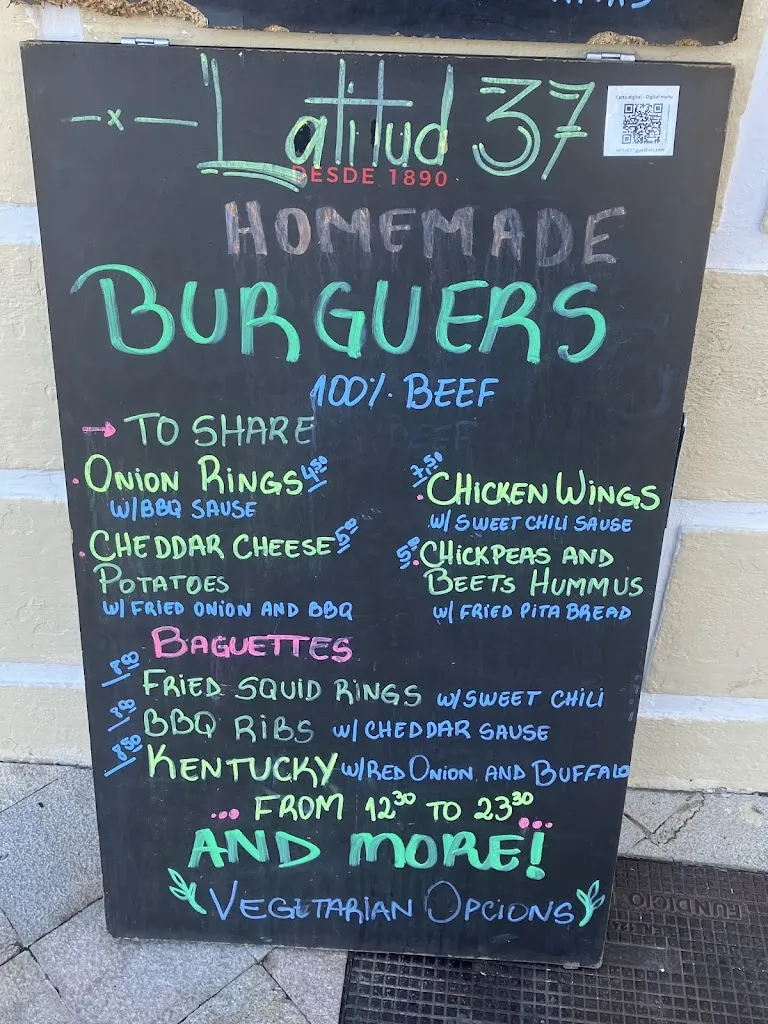 Latitud 37
DESDE 1890
Carta digital - Digital menu
HOMEMADE
BURGUERS
100% BEEF
→ TO SHARE
. ONION RINGS 4,50
W/BBQ SAUSE
. CHEDDAR CHEESE 5,00
POTATOES
W/ FRIED ONION AND BBQ
7,50 . CHICKEN WINGS
W/ SWEET CHILI SAUSE
5,00 . CHICKPEAS AND
BEETS HUMMUS
W/ FRIED PITA BREAD
BAGUETTES
8,00 FRIED SQUID RINGS W/SWEET CHILI
BBQ RIBS W/ CHEDDAR SAUSE
8,50 KENTUCKY W/RED ONION AND BUFFALO
... FROM 12³⁰ TO 23³⁰ ...
AND MORE!
VEGETARIAN OPCIONS
FUNDICIO